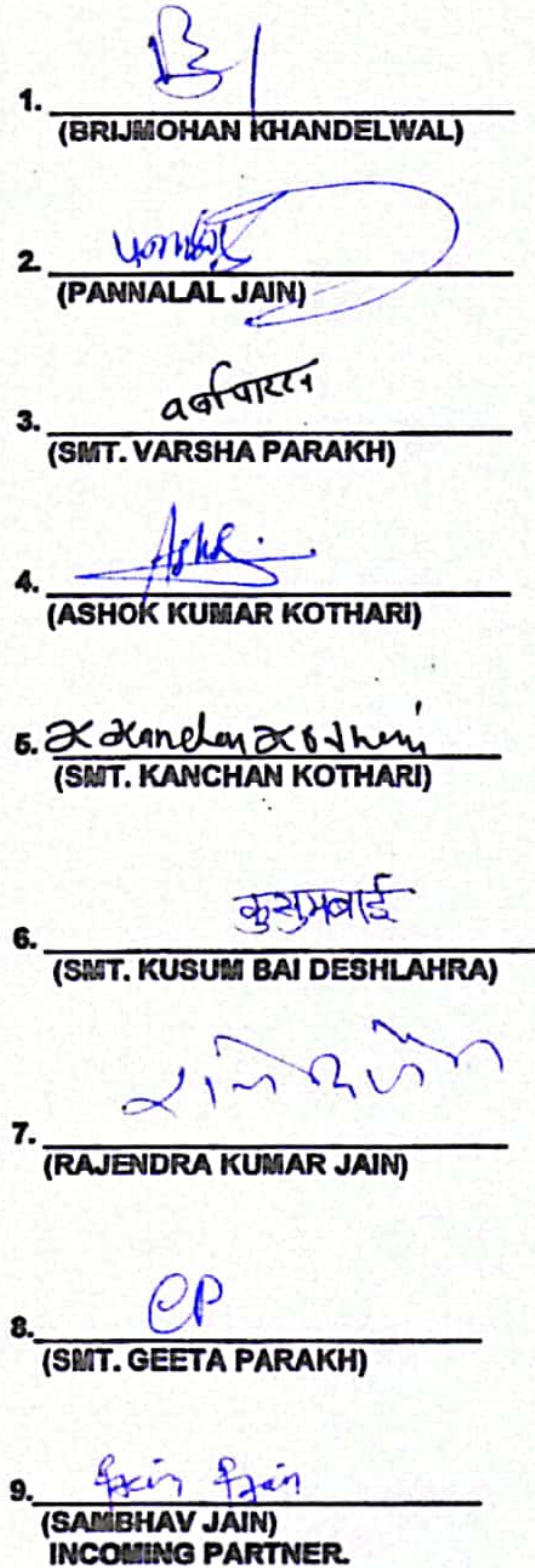 1.
(BRIJMOHAN KHANDELWAL)
2.
(PANNALAL JAIN)
3.
(SMT. VARSHA PARAKH)
4. Ashok
(ASHOK KUMAR KOTHARI)
5. Kanchan Kothari
(SMT. KANCHAN KOTHARI)
6. कुसुमबाई
(SMT. KUSUM BAI DESHLAHRA)
7.
(RAJENDRA KUMAR JAIN)
8. CP
(SMT. GEETA PARAKH)
9.
(SAMBHAV JAIN)
INCOMING PARTNER.